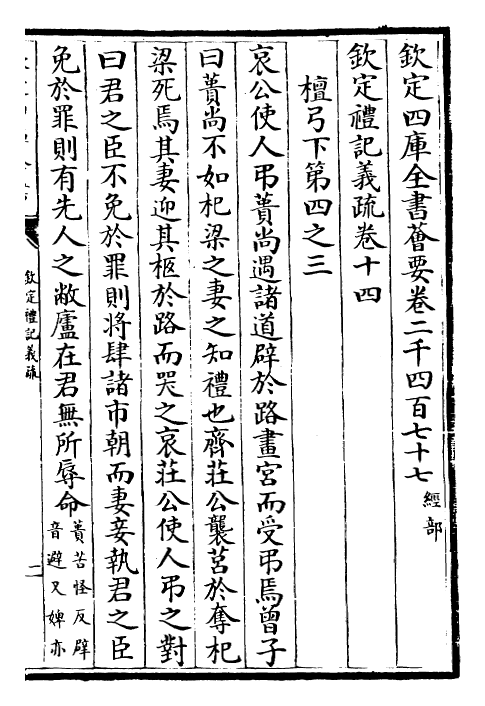 欽定四庫全書薈要卷二千四百七十七 經部
欽定禮記義疏卷十四
檀弓下第四之三
哀公使人弔蕢尚遇諸道辟於路畫宮而受弔焉曾子
曰蕢尚不如杞梁之妻之知禮也齊莊公襲莒於奪杞
梁死焉其妻迎其柩於路而哭之哀莊公使人弔之對
曰君之臣不免於罪則將肆諸市朝而妻妾執君之臣
免於罪則有先人之敝廬在君無所辱命
蕢苦怪反辟
音避又婢亦
欽定禮記義疏